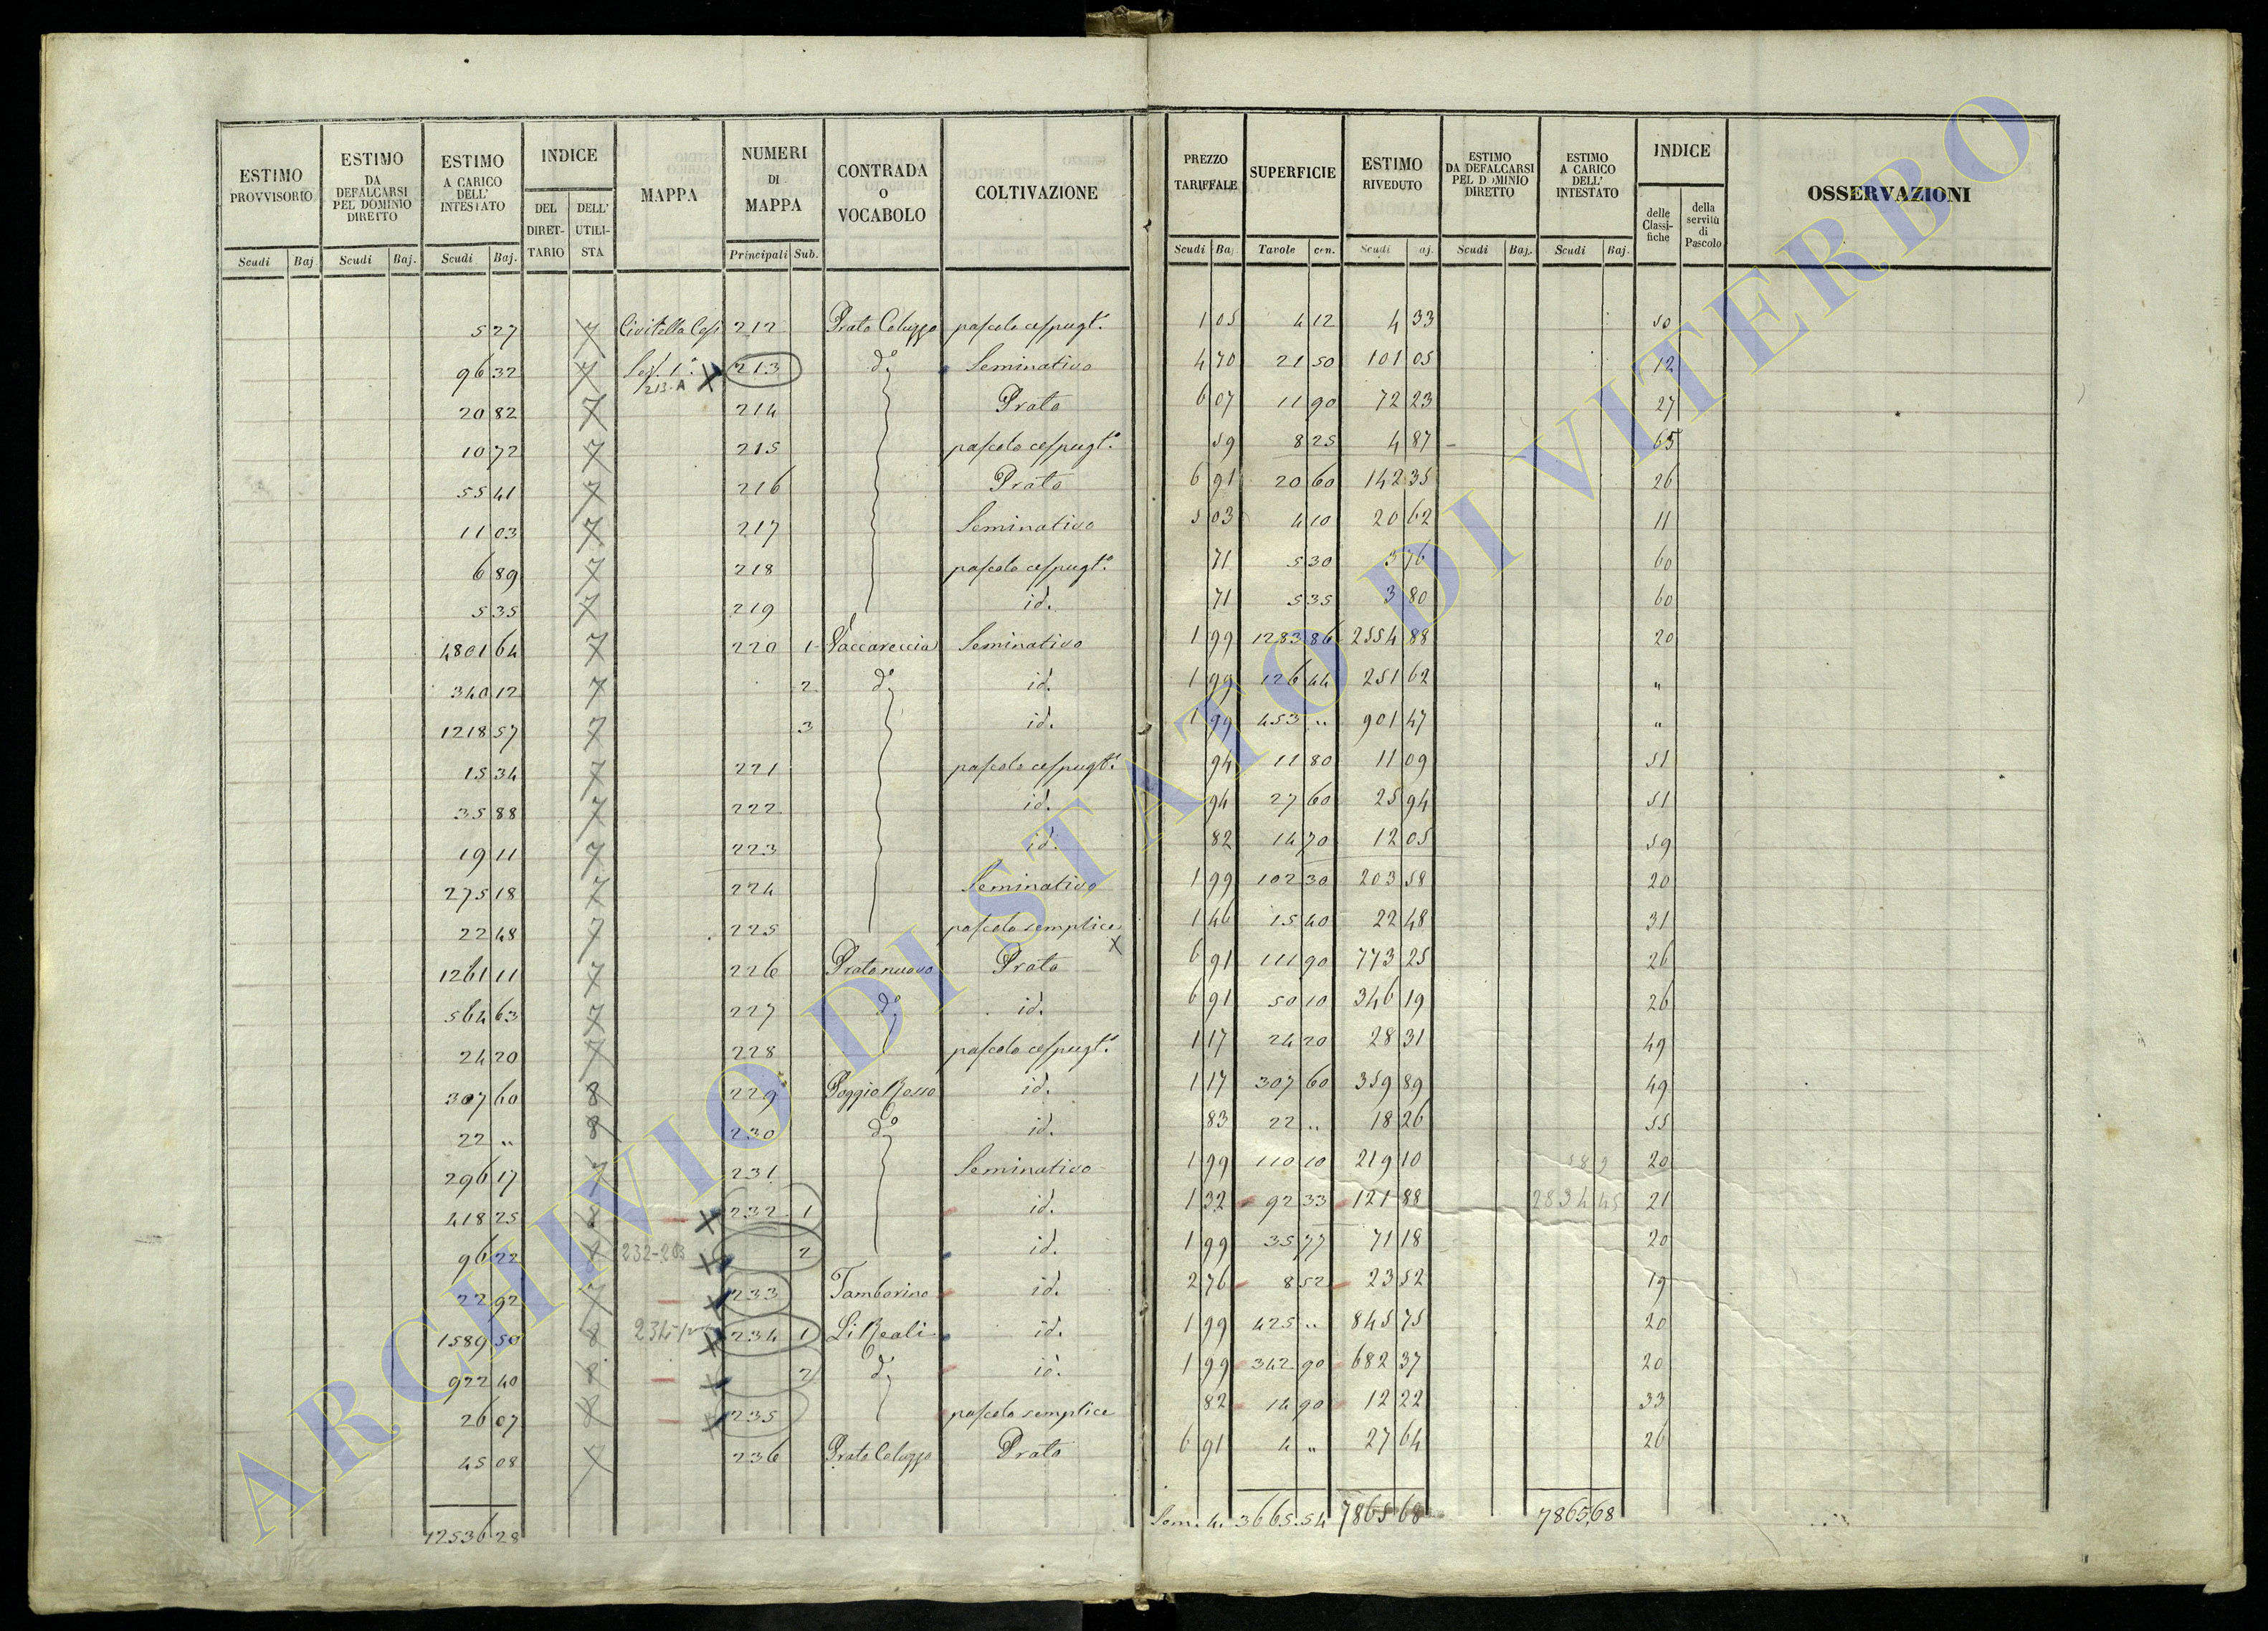 ESTIMO PROVVISORIO | ESTIMO DA DEFALCARSI PEL DOMINIO DIRETTO | ESTIMO A CARICO DELL' INTESTATO | INDICE | MAPPA | NUMERI DI MAPPA | CONTRADA O VOCABOLO | COLTIVAZIONE | PREZZO TARIFFALE | SUPERFICIE | ESTIMO RIVEDUTO | ESTIMO DA DEFALCARSI PEL DOMINIO DIRETTO | ESTIMO A CARICO DELL' INTESTATO | INDICE | OSSERVAZIONI
DEL DIRETTARIO | DELL' UTILISTA | delle Classifiche | della servitù di Pascolo
Scudi | Baj. | Scudi | Baj. | Scudi | Baj. | Principali | Sub. | Scudi | Baj. | Tavole | cen. | Scudi | aj. | Scudi | Baj. | Scudi | Baj.
5 27 | 7 | Civitella Cesi | 212 | Prato Coluzzo | pascolo cespugt.o | 1 05 | 4 12 | 4 33 | 50
96 32 | 7 | Sez. 1a 213.A | 213 | do | Seminativo | 4 70 | 21 50 | 101 05 | 12
20 82 | 7 | 214 | Prato | 6 07 | 11 90 | 72 23 | 27
10 72 | 7 | 215 | pascolo cespugt.o | 59 | 8 25 | 4 87 | 65
55 41 | 7 | 216 | Prato | 6 91 | 20 60 | 142 35 | 26
11 03 | 7 | 217 | Seminativo | 5 03 | 4 10 | 20 62 | 11
6 89 | 7 | 218 | pascolo cespugt.o | 71 | 5 30 | 3 76 | 60
5 35 | 7 | 219 | id. | 71 | 5 35 | 3 80 | 60
4801 64 | 7 | 220 | 1 | Vaccareccia | Seminativo | 1 99 | 1283 86 | 2554 88 | 20
340 12 | 7 | 2 | do | id. | 1 99 | 126 44 | 251 62 | "
1218 57 | 7 | 3 | id. | 1 99 | 453 " | 901 47 | "
15 34 | 7 | 221 | pascolo cespugt.o | 94 | 11 80 | 11 09 | 51
35 88 | 7 | 222 | id. | 94 | 27 60 | 25 94 | 51
19 11 | 7 | 223 | id. | 82 | 14 70 | 12 05 | 59
275 18 | 7 | 224 | Seminativo | 1 99 | 102 30 | 203 58 | 20
22 48 | 7 | 225 | pascolo semplice | 1 46 | 15 40 | 22 48 | 31
1261 11 | 7 | 226 | Prato nuovo | Prato | 6 91 | 111 90 | 773 25 | 26
564 63 | 7 | 227 | do | id. | 6 91 | 50 10 | 346 19 | 26
24 20 | 7 | 228 | pascolo cespugt.o | 1 17 | 24 20 | 28 31 | 49
307 60 | 8 | 229 | Poggio Rosso | id. | 1 17 | 307 60 | 359 89 | 49
22 " | 8 | 230 | do | id. | 83 | 22 " | 18 26 | 55
296 17 | 7 | 231 | Seminativo | 1 99 | 110 10 | 219 10 | 20
418 25 | 8 | 232 | 1 | id. | 1 32 | 92 33 | 121 88 | 2834 45 | 21
96 22 | 8 | 232-203 | 2 | id. | 1 99 | 35 77 | 71 18 | 20
22 92 | 7 | 233 | Tamborino | id. | 2 76 | 8 52 | 23 52 | 19
1589 50 | 8 | 234 | 1 | Li Reali | id. | 1 99 | 425 " | 845 75 | 20
922 40 | 8 | 2 | do | id. | 1 99 | 342 90 | 682 37 | 20
26 07 | 8 | 235 | pascolo semplice | 82 | 14 90 | 12 22 | 33
45 08 | 7 | 236 | Prato Coluzzo | Prato | 6 91 | 4 " | 27 64 | 26
12536 28 | Som. 4. | 3665.54 | 7865 68 | 7865,68
ARCHIVIO DI STATO DI VITERBO